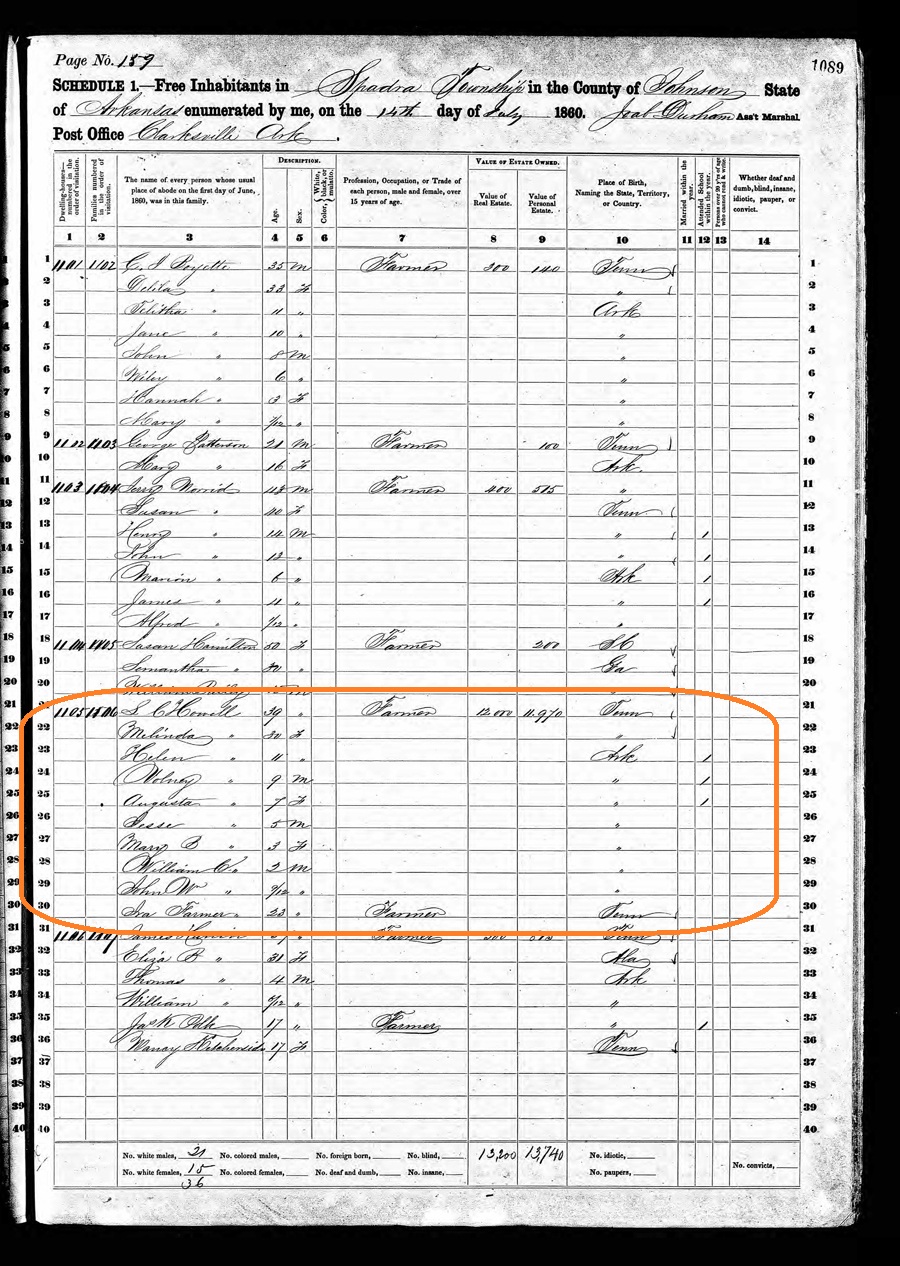 Page No. 159
1089
SCHEDULE 1.—Free Inhabitants in Spadra Township in the County of Johnson State
of Arkansas enumerated by me, on the 14th day of July 1860. Joal Durham Ass't Marshal.
Post Office Clarksville Ark.
Dwelling-houses—numbered in the order of visitation.
Families numbered in the order of visitation.
The name of every person whose usual place of abode on the first day of June, 1860, was in this family.
DESCRIPTION.
Age.
Sex.
Color, White, black, or mulatto.
Profession, Occupation, or Trade of each person, male and female, over 15 years of age.
VALUE OF ESTATE OWNED.
Value of Real Estate.
Value of Personal Estate.
Place of Birth, Naming the State, Territory, or Country.
Married within the year.
Attended School within the year.
Persons over 20 y'rs of age who cannot read & write.
Whether deaf and dumb, blind, insane, idiotic, pauper, or convict.
1 2 3 4 5 6 7 8 9 10 11 12 13 14
1 1101 1102 35 M Farmer 300 140 Tenn 1
2 Delila " 33 F " 2
3 Telitha " 11 " Ark 3
4 Jane " 10 " " 4
5 John " 8 M " 5
6 Wiley " 6 " " 6
7 Hannah " 3 F " 7
8 Mary " /12 " " 8
9 1103 George Patterson 21 M Farmer 100 Tenn 9
10 Mary " 16 F Ark. 10
11 1103 1104 M Farmer 400 515 " 11
12 Susan " 40 F Tenn 12
13 Henry " 14 M " 1 13
14 John " 12 " " 1 14
15 Marion " 6 " Ark 1 15
16 James " 11 " " 1 16
17 Alfred " /12 " " 17
18 1104 1105 Susan Hamilton 50 F Farmer 200 SC 18
19 Semantha " " Ga 19
20 William M " 20
21 1105 1106 S C Howell 39 " Farmer 12,000 11,970 Tenn 21
22 Melinda " 30 F " 22
23 Helen " 11 " Ark 1 23
24 Volney " 9 M " 1 24
25 Augusta " 7 F " 1 25
26 Jesse " 5 M " 26
27 Mary B " 3 F " 27
28 William C " 2 M " 28
29 John Wm " /12 " " 29
30 Ira Farmer " 23 " Farmer Tenn 30
31 1106 James " Farmer Tenn 31
32 Eliza B " 31 F Ala 32
33 Thomas " 4 M Ark 33
34 William " /12 " " 34
35 Jack 17 " Farmer " 1 35
36 17 F Tenn 36
37 37
38 38
39 39
40 40
No. white males, 21 No. colored males, No. foreign born, No. blind, 13,200 13,740 No. idiotic,
No. white females, 15 No. colored females, No. deaf and dumb, No. insane, No. paupers, No. convicts,
36